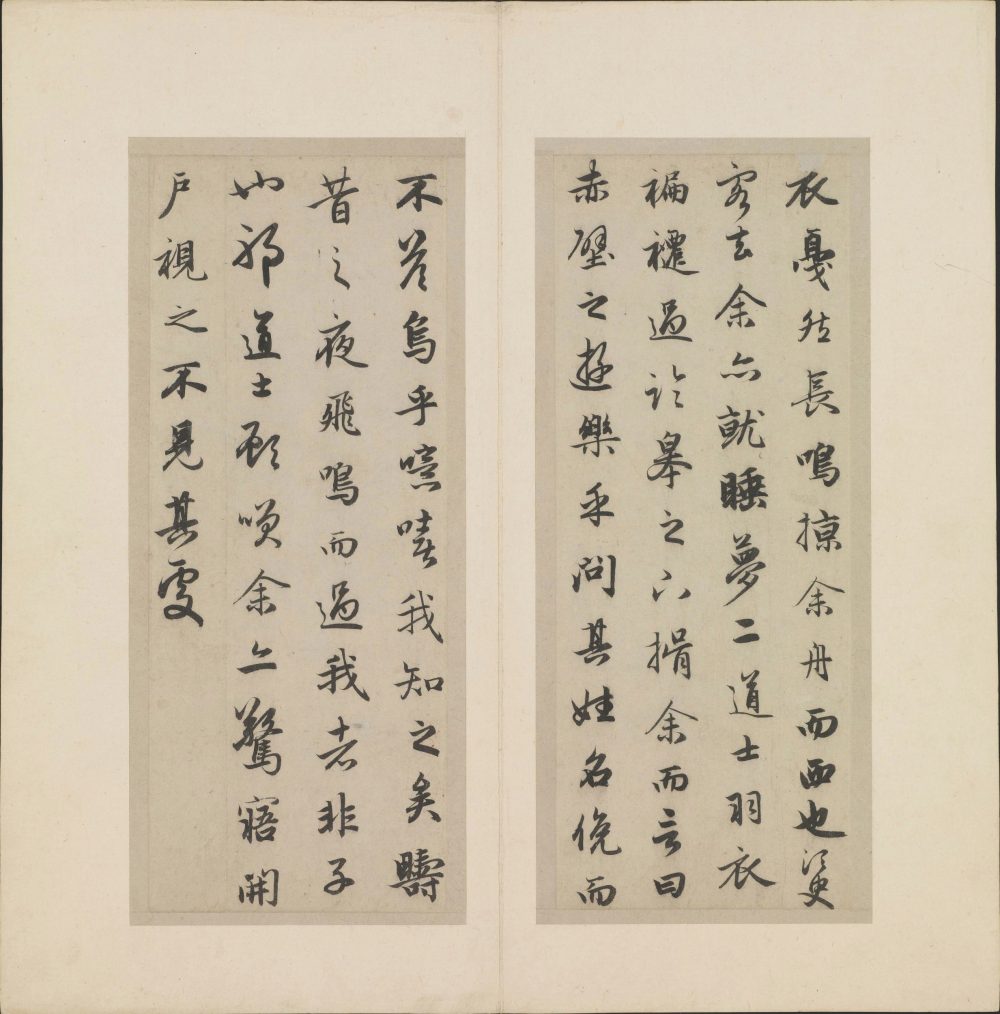 衣戛然長鳴掠余舟而西也須臾
客去余亦就睡夢二道士羽衣
褊褼過臨皋之下揖余而言曰
赤壁之遊樂乎問其姓名俛而
不答烏乎噫嘻我知之矣疇
昔之夜飛鳴而過我者非子
也邪道士顧唉余亦驚寤開
戶視之不見其處